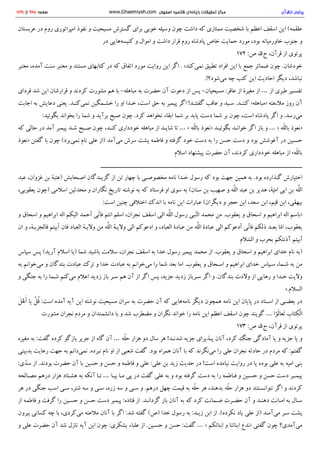 پرتوی از قرآن
مرکز تحقیقات رایانه‌ای قائمیه اصفهان
www.Ghaemiyeh.com
حلقه‌ها) این اسقف اعظم با شخصیت ممتازی که داشت چون وسیله خوبی برای گسترش مسیحیت و نفوذ امپراتوری روم در عربستان
و جنوب خاورمیانه بود، مورد حمایت خاص پادشاه روم قرار داشت و اموال و کنیسه‌هایی در
پرتوی از قرآن، ج‌5، ص: 172
خودشان. چون ضمائر جمع با این افراد تطبیق نمی‌کند» . اگر این روایت مورد اتفاق که در کتابهای مستند و معتبر سنت آمده، معتبر
نباشد، دیگر احادیث این کتب چه می‌شود؟!.
تفسیر طبری از ... از مغیره از عامر: مسیحیان- پس از دعوت آن حضرت به مباهله- با هم مشورت کردند و قرارشان این شد فردای
آن روز ملاعنه «مباهله» کنند. سید و عاقب گفتند؟! اگر پیمبر بر حق است، خدا او را خشمگین نمی‌کند. یعنی دعایش به اجابت
می‌رسد. و اگر پادشاه است، چون بر شما دست یابد بر شما ابقاء نخواهد کرد. چون صبح برآید و شما را بخواند بگوئید:
«نعوذ باللّه» ... و باز اگر خواند بگوئید «نعوذ باللّه» ... تا شاید از مباهله خودداری کند، چون صبح شد پیمبر آمد در حالی که
حسین در آغوشش بود و دست حسن را به دست خود گرفته و فاطمه پشت سرش می‌آمد (از علی نام نمی‌برد) چون با گفتن «نعوذ
باللّه» از مباهله خودداری کردند، آن حضرت پیشنهاد اسلام
اختیارش گذارده بود. به همین جهت بود که رسول خدا نامه مخصوصی با چهار تن از گزیدگان اصحابش (عتبة بن غزوان، عبد
اللّه بن ابی امیّة، هدیر بن عبد اللّه و صهیب بن سنان) به سوی او فرستاد که به نوشته تاریخ نگاران و محدثین اسلامی (چون یعقوبی،
بیهقی، ابن قیم، ابن سعد، ابن حجر و دیگران) عبارات این نامه با اندک اختلافی چنین است:
«باسم اله ابراهیم و اسحاق و یعقوب. من محمد النبی رسول اللّه الی اسقف نجران، اسلم انتم فأنی أحمد الیکم اله ابراهیم و اسحاق و
یعقوب. اما بعد ذلکم فأنی أدعوکم الی عبادة اللّه من عبادة العباد، و ادعوکم الی ولایة اللّه من ولایة العباد فان أبیتم فالجزیة، و ان
أبیتم آذنتکم بحرب و السّلام
(به نام خدای ابراهیم و اسحاق و یعقوب. از محمد پیمبر رسول خدا به اسقف نجران، سلامت باشید شما (یا اسلام آرید) پس سپاس
من به شما، سپاس خدای ابراهیم و اسحاق و یعقوب. اما بعد شما را می‌خوانم به عبادت خدا و ترک عبادت بندگان و می‌خوانم به
ولایت خدا و رهایی از ولایت بندگان. و اگر سرباز زدید جزیه، پس اگر از آن هم سر باز زدید اعلام می‌کنم شما را به جنگی و
السلام»
در بعضی از اسناد در پایان این نامه همچون دیگر نامه‌هایی که آن حضرت به سران مسیحیت نوشته این آیه آمده است: قُلْ یا أَهْلَ
الْکِتابِ تَعالَوْا ... گویند چون اسقف اعظم این نامه را خواند نگران و مضطرب شد و با دانشمندان و مردم نجران مشورت
پرتوی از قرآن، ج‌5، ص: 173
و یا جزیه و یا آمادگی جنگ کرد، آنان پذیرای جزیه شدند! هر سال دو هزار حلّه ... آن گاه از جریر بازگو کرده گفت: به مغیره
گفتم: که مردم در حادثه نجران علی را می‌نگرند که با آنان همراه بود. گفت شعبی از او نام نبرده. نمی‌دانم به جهت رعایت بدبینی
بنی امیه به علی بوده یا در روایت نیامده است! در حدیث زید بن علی: علی و فاطمه و حسن و حسین با آن حضرت بودند. از سدّی:
پیمبر دست حسن و حسین و فاطمه را به دست گرفته بود و به علی گفت در پی ما بیا ... تا آنکه به هشتاد هزار درهم مصالحه
کردند و اگر نتوانستند دو هزار حلّه بدهند، هر حلّه به قیمت چهل درهم. و سی و سه زره، سی و سه شتر، سی اسب جنگی در هر
سال به امانت دهند و آن حضرت ضمانت کرد که به آنان باز گرداند. از قتاده: پیمبر دست حسن و حسین را گرفت و فاطمه از
پشت سر می‌آمد (از علی یاد نکرده). از ابن زید: به رسول خدا (ص) گفته شد: اگر با آنان ملاعنه می‌کردی، با چه کسانی بیرون
می‌آمدی؟ چون گفتی «ندع ابنائنا و ابنائکم» ... گفت: حسن و حسین. از علباء یشکری: چون این آیه نازل شد آن حضرت علی و